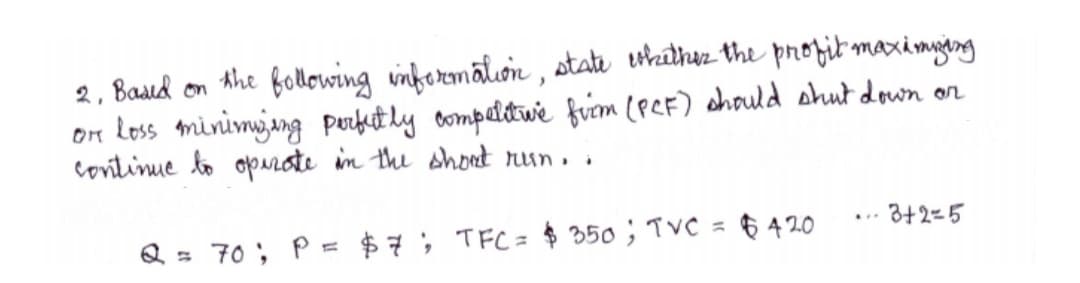 2, Based on the following information, state whether the profit maximizing
or loss minimizing perfectly competitive firm (PCF) should shut down or
continue to operate in the short run. .
Q = 70; P = $7; TFC = $350; TVC = $420 ... 3+2=5